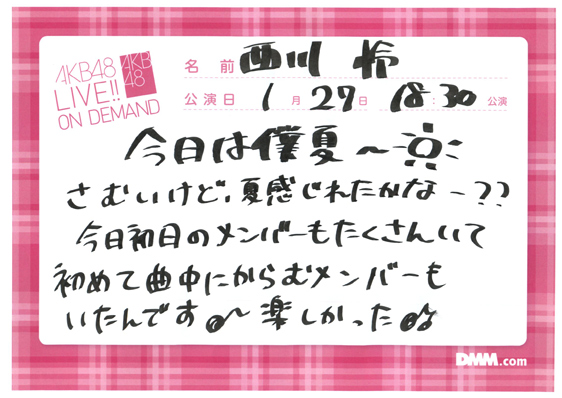 AKB48
LIVE!!
ON DEMAND
AKB
48
名前 西川 怜
公演日 1月27日 18:30公演
今日は僕夏〜
さむいけど、夏感じれたかなー??
今日初日のメンバーもたくさんいて
初めて曲中にからむメンバーも
いたんです♪〜 楽しかった♪
DMM.com